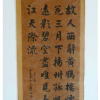 故人西辭黃鶴樓煙
花三月下揚州孤帆
遠影碧空盡唯見長
江天際流